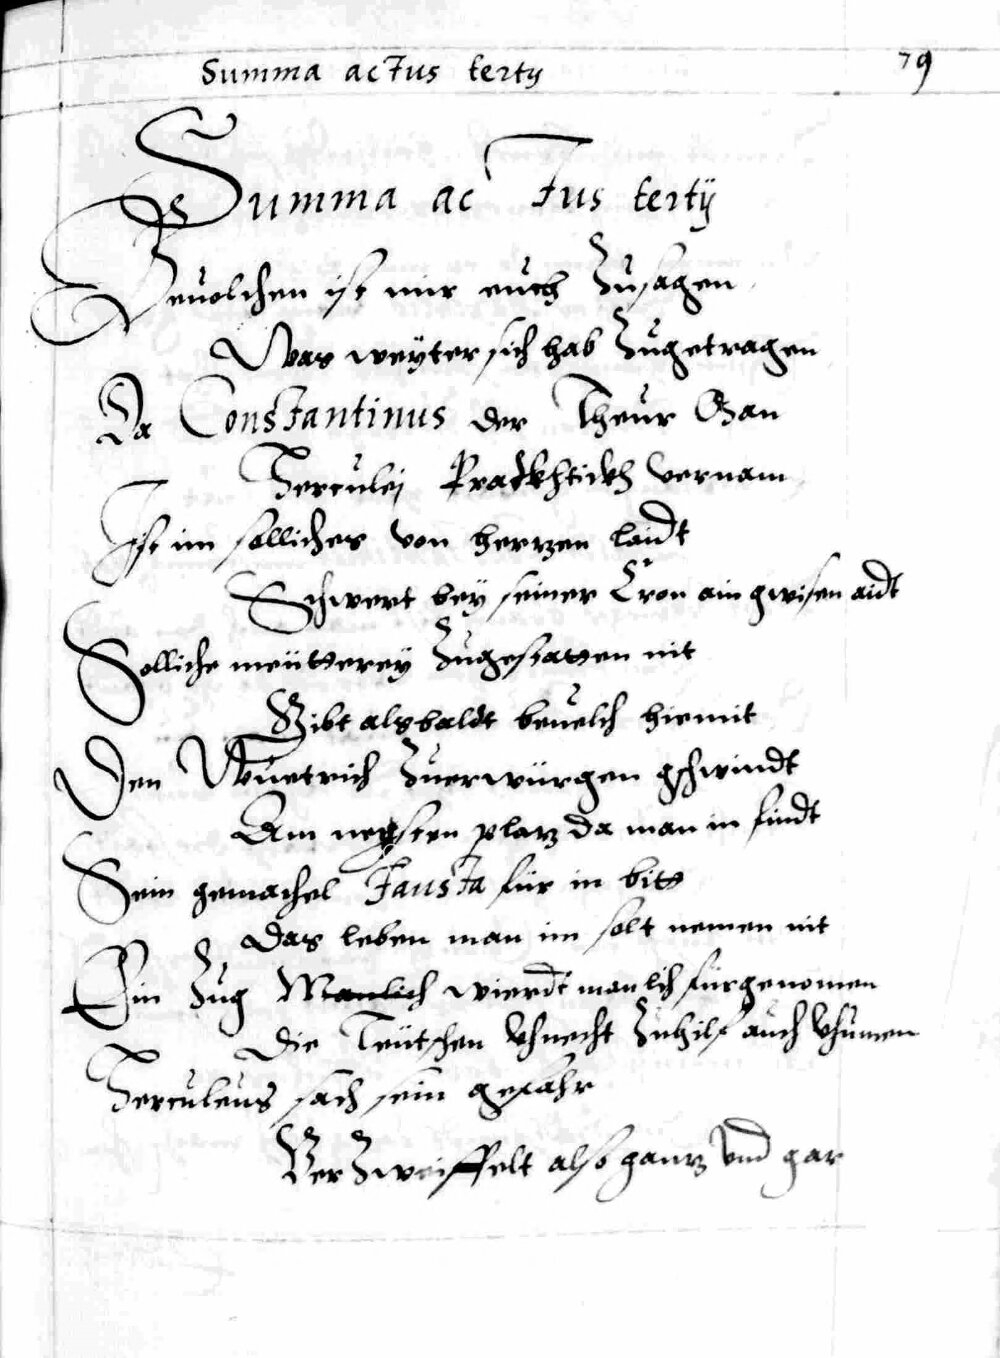 Summa actus tertij 79
Summa actus tertij
Beuolchen ist mir euch Zusagen
Was weyter sich hab Zugetragen
Da Constantinus der Theur Man
Herculej Pracktickh vernam
Ist im solliches von herzen laidt
Schwert bey seiner Cron ain gwisen aidt
Solliche meütterey Zugestatten nit
Gibt alsbaldt beuelch hiemit
Den Wuetrich Zuerwürgen gschwindt
Am negsten plaz da man in findt
Sein gemachel Fausta für in bitt
Das leben man im solt nemen nit
Ein Zug Manlich wierdt manlich fürgenomen
Die Teütschen khnecht Zuhilf auch khumen
Herculeus sach sein gefahr
VerZweiffelt also ganz vnd gar